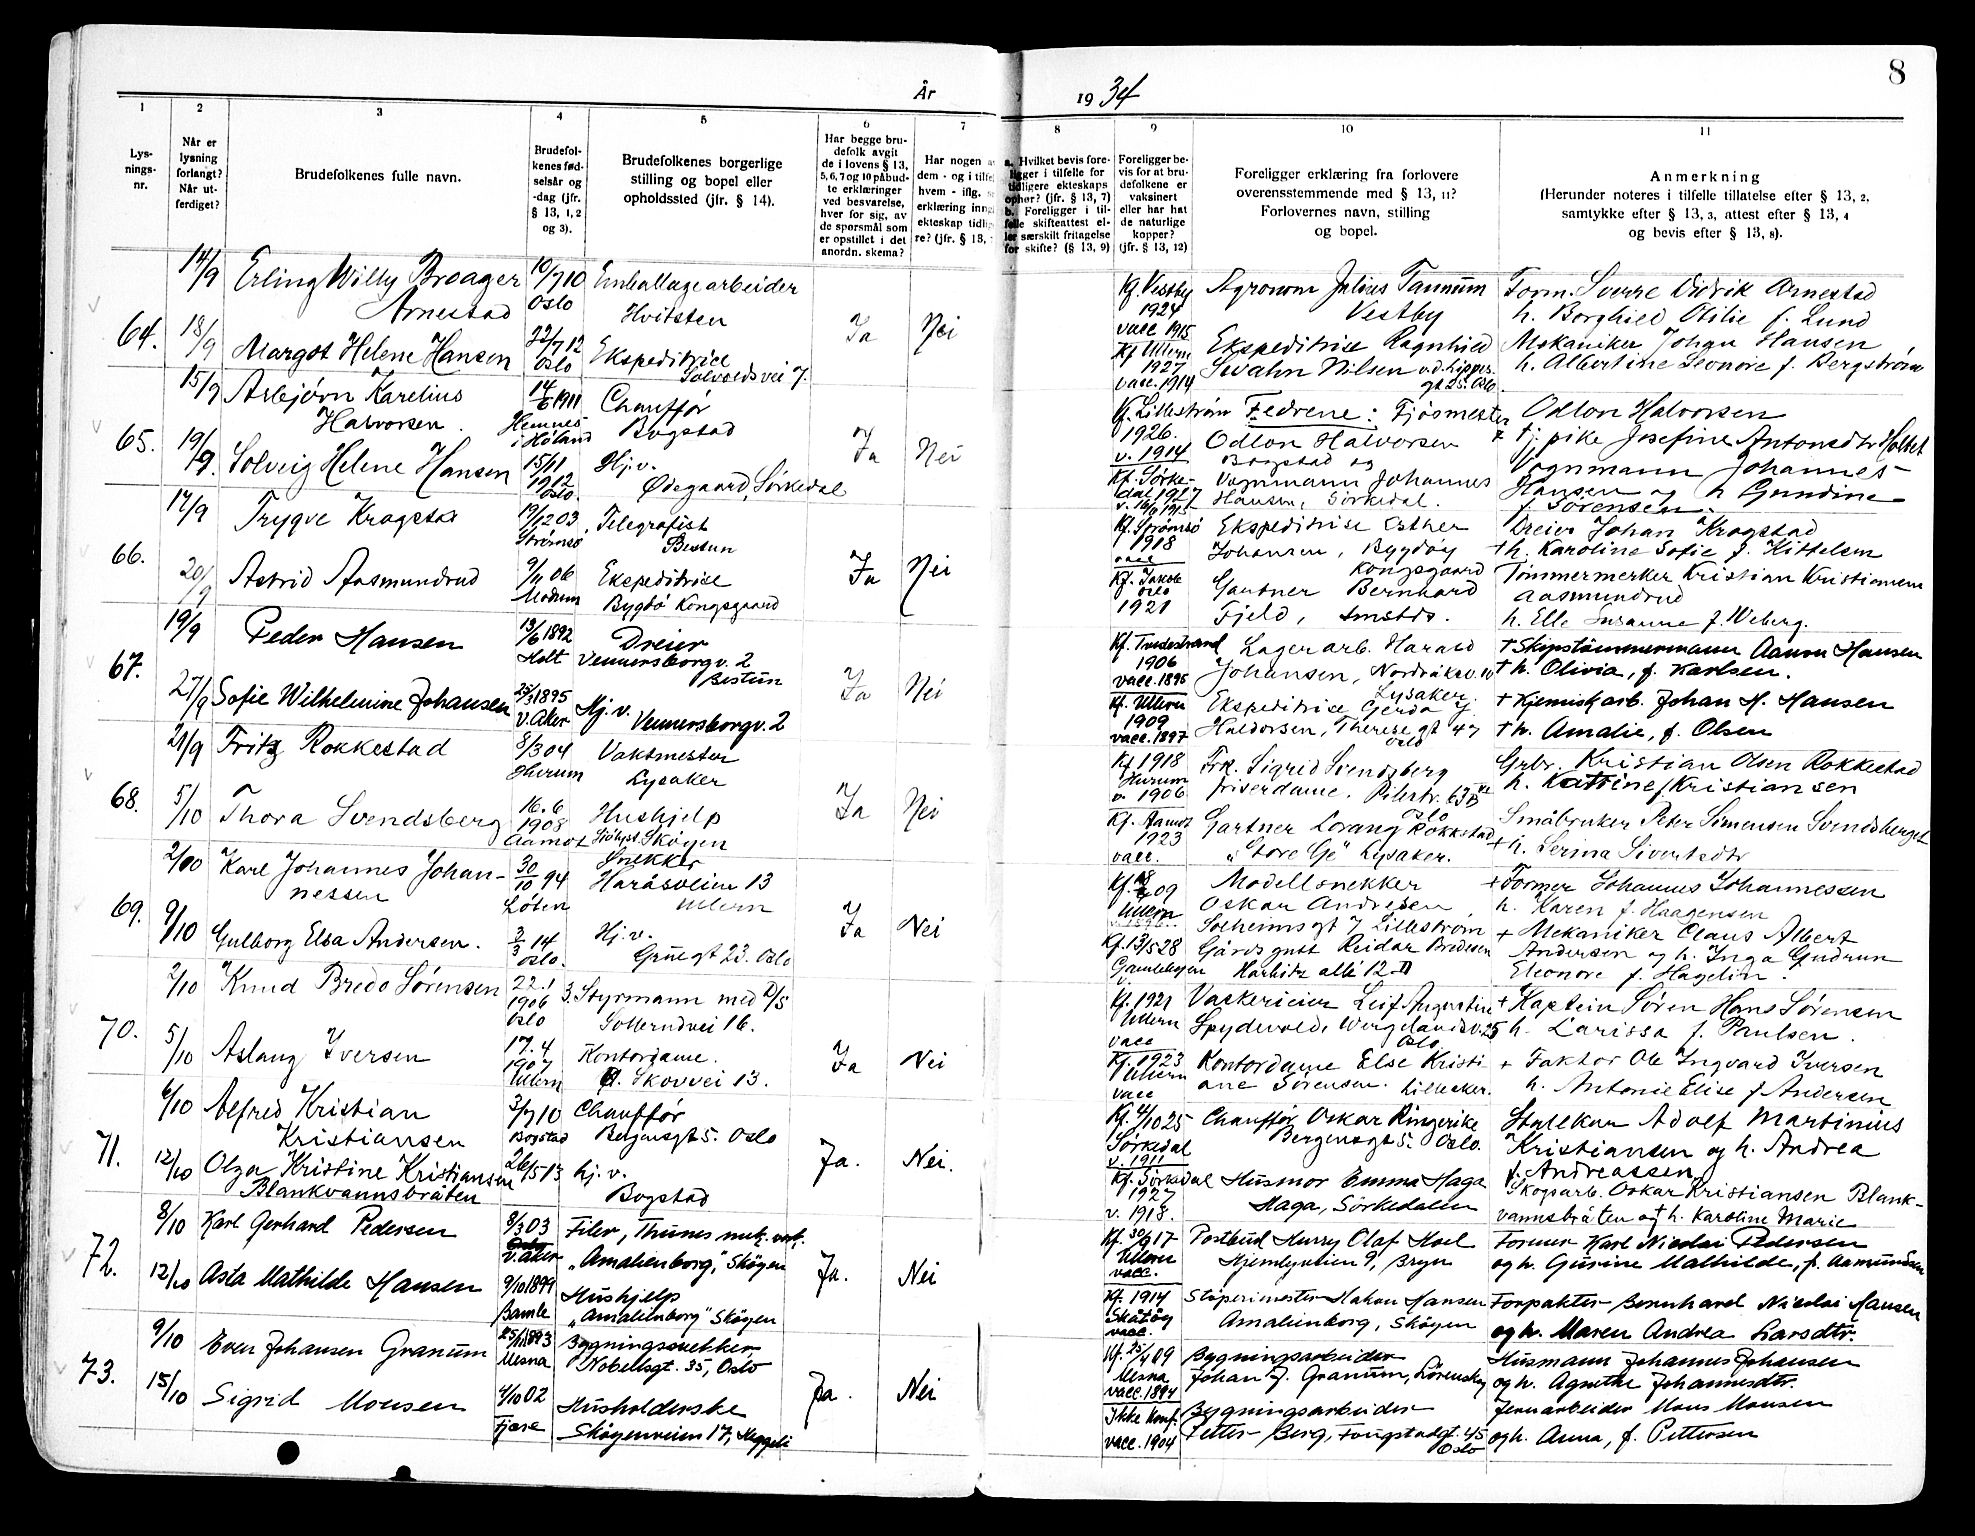 8
År 1934
1 2 3 4 5 6 7 8 9 10 11
Lys-
nings-
nr.
Når er
lysning
forlangt?
Når ut-
ferdiget?
Brudefolkenes fulle navn.
Brudefol-
kenes fød-
selsår og
-dag (jfr.
§ 13, 1, 2
og 3).
Brudefolkenes borgerlige
stilling og bopel eller
opholdssted (jfr. § 14).
Har begge bru-
defolk avgit
de i lovens § 13,
5, 6, 7 og 10 påbud-
te erklæringer
ved besvarelse,
hver for sig, av
de spørsmål som
er opstillet i det
anordn. skema?
Har nogen a
dem - og i tilfel
hvem - iflg. s
erklæring inng
ekteskap tidlig
re? (jfr. § 13,
a. Hvilket bevis fore-
ligger i tilfelle for
tidligere ekteskaps
ophør? (jfr. § 13, 7)
b. Foreligger i til-
felle skifteattest el-
ler særskilt fritagelse
for skifte? (§ 13, 9)
Foreligger be-
vis for at bru-
defolkene er
vaksinert
eller har hat
de naturlige
kopper?
(jfr. § 13, 12)
Foreligger erklæring fra forlovere
overensstemmende med § 13, 11?
Forlovernes navn, stilling
og bopel.
Anmerkning
(Herunder noteres i tilfelle tillatelse efter § 13, 2,
samtykke efter § 13, 3, attest efter § 13, 4
og bevis efter § 13, 8).
64. 14/9 Erling Willy Broager
Arnestad
10/7 10
Oslo
Emballagearbeider
Hvitsten
Ja Nei
Kf. Vestby
1924
vacc 1915
Agronom Julius Tannum
Vestby
Form. Sverre Didrik Arnestad
h. Borghild Otilie f. Lund
18/9 Margot Helene Hansen
22/7 12
Oslo
Ekspeditrise
Solvoldsvei 7.
Kf Ullern
1927
vacc. 1914
Ekspeditrise Ragnhild
Svahn Nilsen
gt 25. Oslo
Mekaniker Johan Hansen
h. Albertine Leonore f. Bergstrøm
65. 15/9 Asbjørn Karelius
Halvorsen.
14/6 1911
Hemnes
i Høland
Chauffør
Bogstad
Ja Nei
Kf. Lillestrøm
1926.
v. 1914
Fedrene: Fjøsmester
Odlon Halvorsen
Bogstad og
Odlon Halvorsen
tj. pike Josefine Antonsdtr Holtet
19/9. Solveig Helene Hansen
15/11
1912
Oslo.
Hj. v.
Ødegaard, Sørkedal
Kf. Sørke-
dal 1927
Vognmann Johannes
Hansen, Sørkedal.
Vognmann Johannes
Hansen og h Gundine
f. Sørensen.
66. 17/9 Trygve Kragstad
03
Strømsø
Telegrafist
Bestun
Ja Nei
Kf. Strømsø
1918
vacc
Ekspeditrise Esther
Johansen, Bygdøy
Kongsgaard
Dreier Johan Kragstad
+ h. Karoline Sofie f. Kittelsen
20/9 Astrid Aasmundrud
9/11 06
Modum
Ekspeditrise
Bygdø Kongsgaard
Kf. Jakob
Oslo
1921
Gartner Bernhard
Fjeld,
Tømmermerker Kristian Kristiansen
Aasmundrud
h. Elle Susanne f. Weberg.
67. 19/9 Peder Hansen
13/6 1892
Holt
Dreier
Vennersborgv. 2
Bestun
Ja Nei
Kf. Tvedestrand
1906
vacc. 1895
Lagerarb. Harald
Johansen, Nordråksv. 10
Lysaker.
+ Skipstømmermann Aanon Hansen
+ h. Olivia, f. Karlsen.
27/9 Sofie Wilhelmine Johansen
25/3 1895
V. Aker
Hj. v.
Vennersborgv. 2
Kf. Ullern
1909
vacc. 1897
Ekspeditrise Gerda
Haldorsen, Therese gt 47
Oslo
+ Kjemiskarb. Johan H. Hansen
+ h. Amalie, f. Olsen
68. 21/9 Fritz Rokkestad
8/3 04
Hurum
Vaktmester
Lysaker
Ja Nei
Kf 1918
Hurum
v. 1906
Frk. Sigrid Svendsberg
friserdame. Pilestr. 63
Oslo
Grbr. Kristian Olsen Rokkestad
h. Katrine f Kristiansen
5/10 Thora Svendsberg
16. 6
1908
Aamot
Hushjelp
Skøyen
Kf. Aamot
1923
vacc.
Gartner Lorang Rokkestad
"Store Ge" Lysaker.
Småbruker Peter Simensen Svendsberget
+ h. Serina Sivertsdtr
69. 2/10 Karl Johannes Johan-
nessen
30/10 94
Løten
Snekker
Haråsveien 13
Ullern
Ja Nei
09
Ullern
Modellsnekker
Oskar Andresen
Solheimsgt 7 Lillestrøm
+ Former Johannes Johannessen
h. Karen f. Haagensen
9/10 Gulborg Elsa Andersen.
3/3 14
Oslo.
Hj. v.
Grünegt 23. Oslo
Kf. 13/5 28
Gamlebyen
v.
Gårdsgutt Reidar Bredesen
Harbitz allé 12 II
+ Mekaniker Claus Albert
Andersen og h. Inga Gudrun
Eleonore f. Hagelin.
70. 2/10 Knud Bredo Sørensen
22. 1
1906
Oslo
3. Styrmann med D/S
Sollerudvei 16.
Ja Nei
Kf. 1921
Ullern
vacc
Vaskerieier Leif Augustin
Spydevold, Wergelandsv. 25
Oslo
+ Kaptein Søren Hans Sørensen
h. Larissa f. Paulsen.
5/10 Aslaug Iversen
17. 4
1907
Ullern
Kontordame.
Ø. Skovvei 13.
Kf. 1923
Ullern
vacc
Kontordame Else Kristi-
ane Sørensen. Lilleaker.
+ Faktor Ole Ingvard Iversen
h. Antonie Elise f Andersen
71. 6/10 Alfred Kristian
Kristiansen
3/7 10
Bogstad
Chauffør
Bergensgt 5. Oslo
Ja. Nei.
Kf. 4/10 25
Sørkedal
v. 1911
Chauffør Oskar Ringerike
Bergensgt 5. Oslo.
Stallkar Adolf Martinius
Kristiansen og h. Andrea
f. Andreassen
12/10 Olga Kristine Kristiansen
Blankvannsbråten
26/5 13
hj. v.
Bogstad
Kf. Sørkedal
1927
v. 1918.
Husmor Emma Haga
Haga, Sørkedalen
Skogsarb. Oskar Kristiansen Blank-
vannsbråten og h. Karoline Marie
72. 8/10 Karl Gerhard Pedersen
8/3 03
V. Aker
Filer, Thunes mek. verk.
"Amalienborg", Skøyen
Ja. Nei
Kf. 30/9 17
Ullern
vacc.
Postbud Harry Olaf Hoel
Hjemlyveien 9, Bryn
Former Karl Nicolai Pedersen
og h. Gurine Mathilde, f. Aamundsen
12/10 Asta Mathilde Hansen
9/10 1899
Bamle
Hushjelp
"Amalienborg" Skøyen
Kf. 1914
Skåtøy
vacc.
Støperimester Hakon Hansen
Amalienborg, Skøyen
Forpakter Bernhard Nicolai Hansen
og h. Maren Andrea Larsdtr.
73. 9/10 Even Johansen Granum
25/11 1893
Mesna
Bygningssnekker
Nobelsgt. 35, Oslo
Ja. Nei
Kf. 25/4 09
Mesna
vacc. 1894
Bygningsarbeider
Johan J. Granum, Lørenskog
Husmann Johannes Johansen
og h. Agnethe Johannesdtr.
15/10 Sigrid Monsen
4/10 02
Fjære
Husholderske
Skøyenveien 17,
Ikke konf.
vacc. 1904
Bygningsarbeider
Petter Berg, 45
Oslo
Jernarbeider Mons Monsen
og h. Anna, f. Pettersen